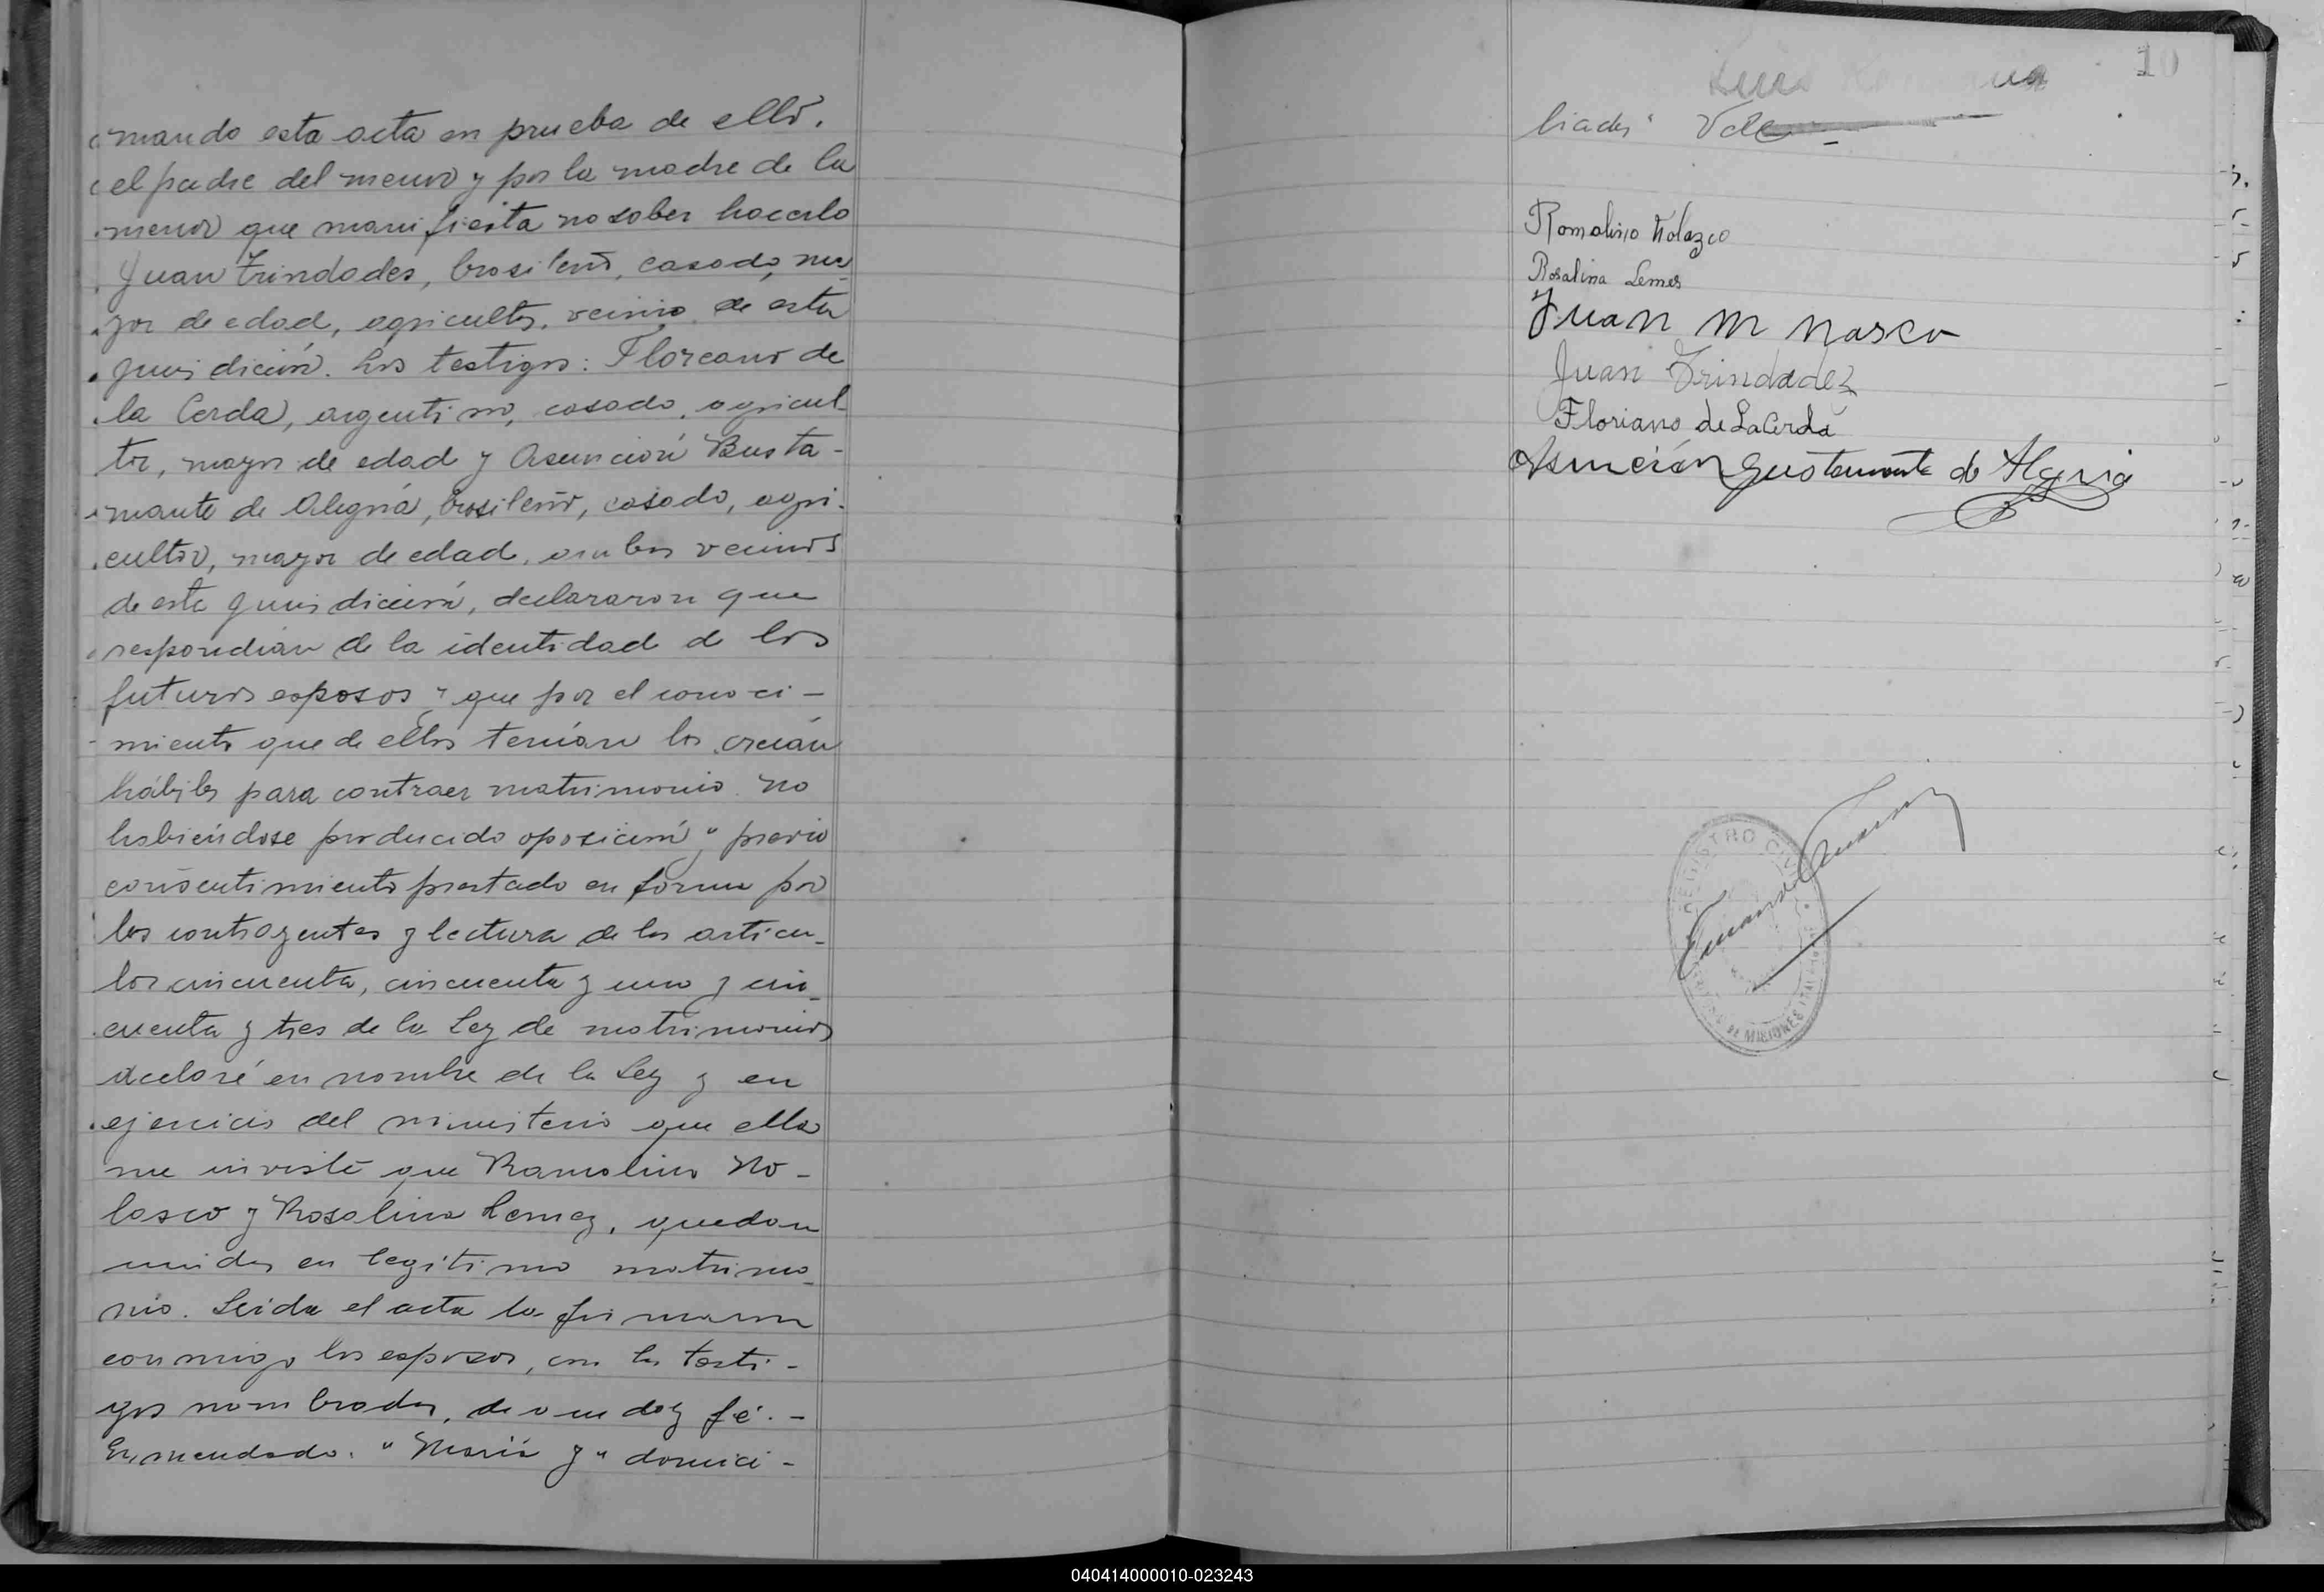 mando esta acta en prueba de ello.
el padre del menor y por la madre de la
menor que manifiesta no saber hacerlo
Juan Trindades, brasileño, casado, ma
yor de edad, agricultor, vecino de esta
jurisdición. Los testigos: Floreano de
la Cerda, argentino, casado, agricul-
tor, mayor de edad y Asunción Busta-
mante de Alegria, brasileño, casado, agri-
cultor, mayor de edad, ambos vecinos
de esta jurisdicción, declararon que
respondian de la identidad de los
futuros esposos y que por el conoci-
miento que de ellos tenian los creian
hábiles para contraer matrimonio. No
habiéndose producido oposición y previo
consentimiento prestado en forma por
los contrayentes y lectura de los articu-
los cincuenta, cincuenta y uno y cin-
cuenta y tres de la Ley de matrimonios
declaré en nombre de la Ley y en
ejercicio del ministerio que ella
me inviste que Ramolino No-
lasco y Rosalina Lemez, quedan
unidos en legitimo matrimo-
nio. Leida el acta la firmaron
conmigo los esposos, con los testi-
gos nombrados, de que doy fé.-
Enmendado: "Maria y" domici-
10
Luis
liados" Vale
Romolino Nolazco
Rosalina Lemes
Juan M Nasco
Juan Trindadez
Floriano de LaCerda
Asunción Gustamante de Alegria
REGISTRO CIVIL
DE MISIONES
040414000010-023243